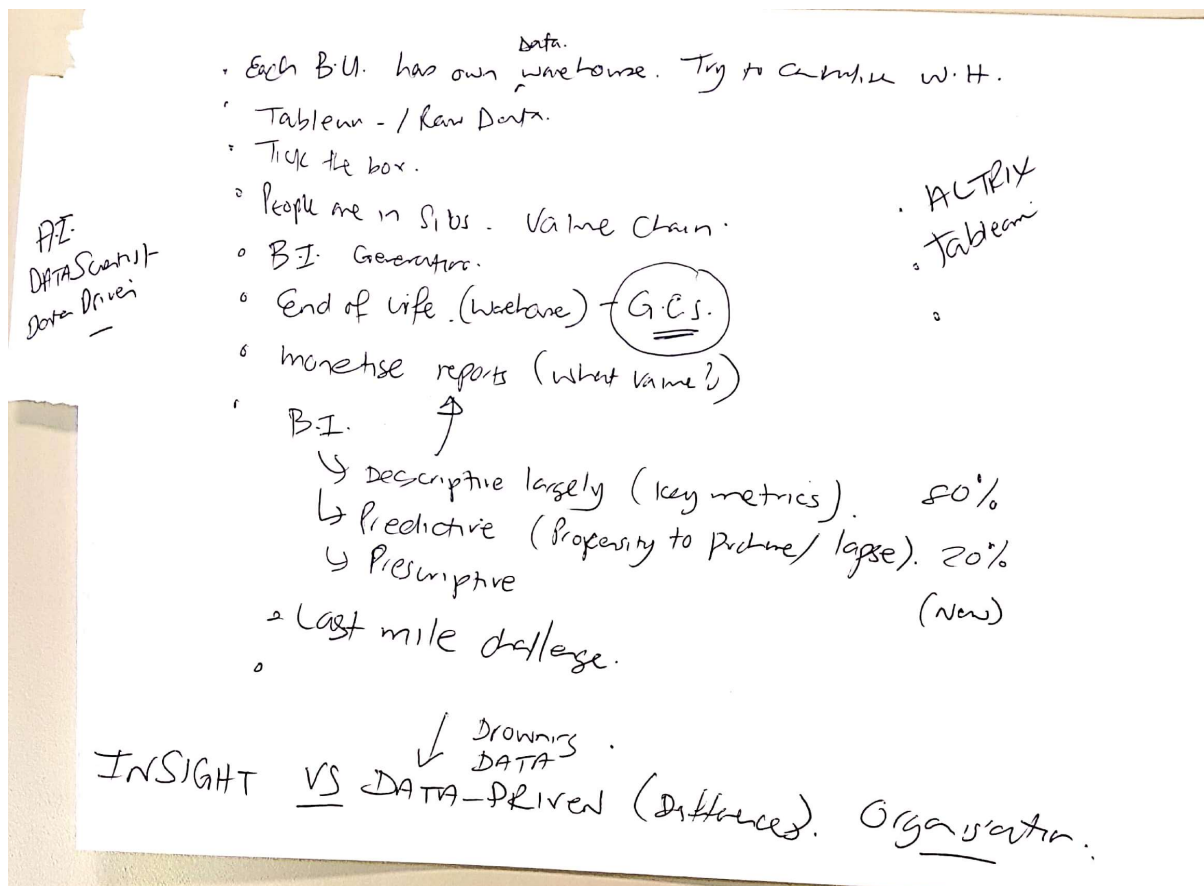 • Each B.U. has own data. warehouse. Try to centralise W.H.
• Tableau - / Raw Data.
• Tick the box.
• People are in Silos. Value Chain.
• B.I. Generation.
• End of life. (warehouse) - G.C.S.
• monetise reports (what value?)
• B.I.
↳ Descriptive largely (key metrics). 80%
↳ Predictive (Propensity to purchase/ lapse). 20%
↳ Prescriptive
(New)
• Last mile challenge.
A.I.
DATA Scientist
Data Driven
• ALTRIX
• Tableau
↓ Drowning
DATA
INSIGHT VS DATA-DRIVEN (Differences). Organisation.